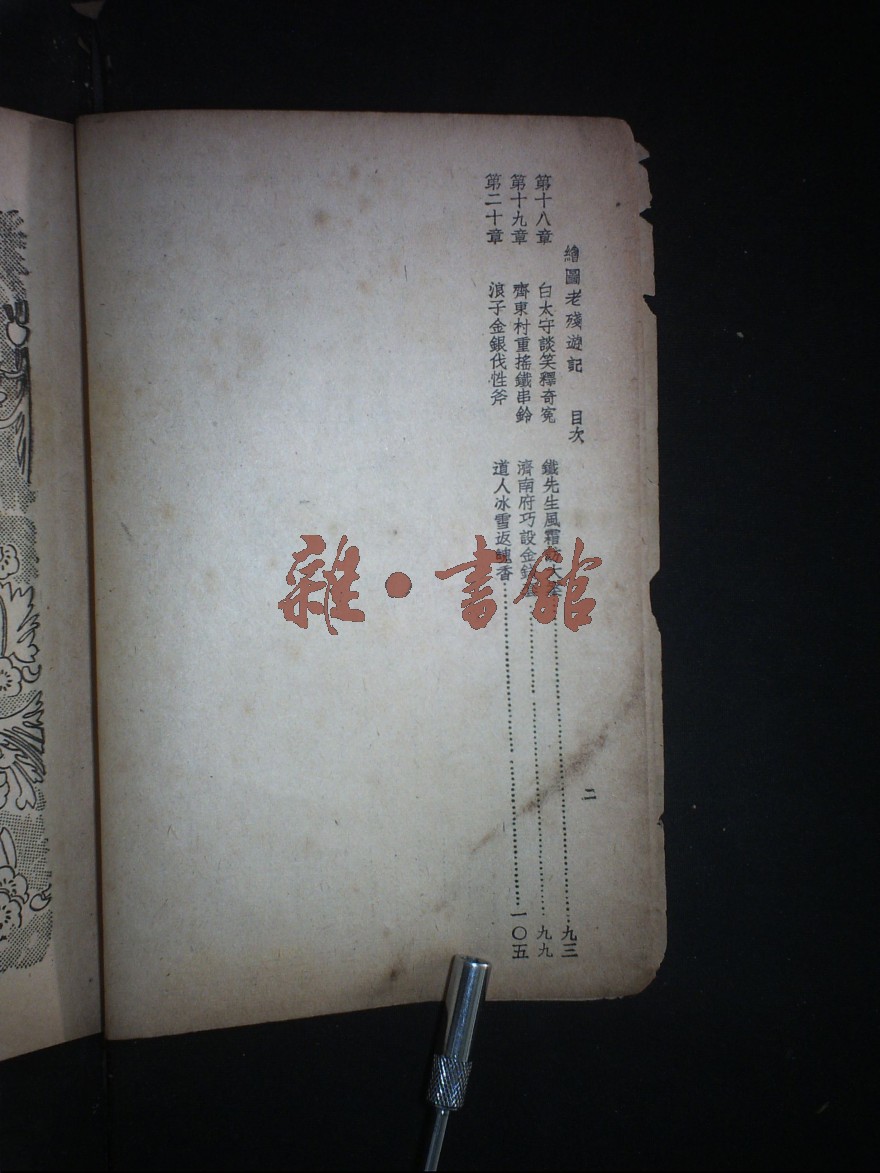 繪圖老殘遊記 目次
二
第十八章 白太守談笑釋奇冤 鐵先生風霜 九三
第十九章 齊東村重搖鐵串鈴 濟南府巧設金 九九
第二十章 浪子金銀伐性斧 道人冰雪返魂香 一〇五
雜·書館